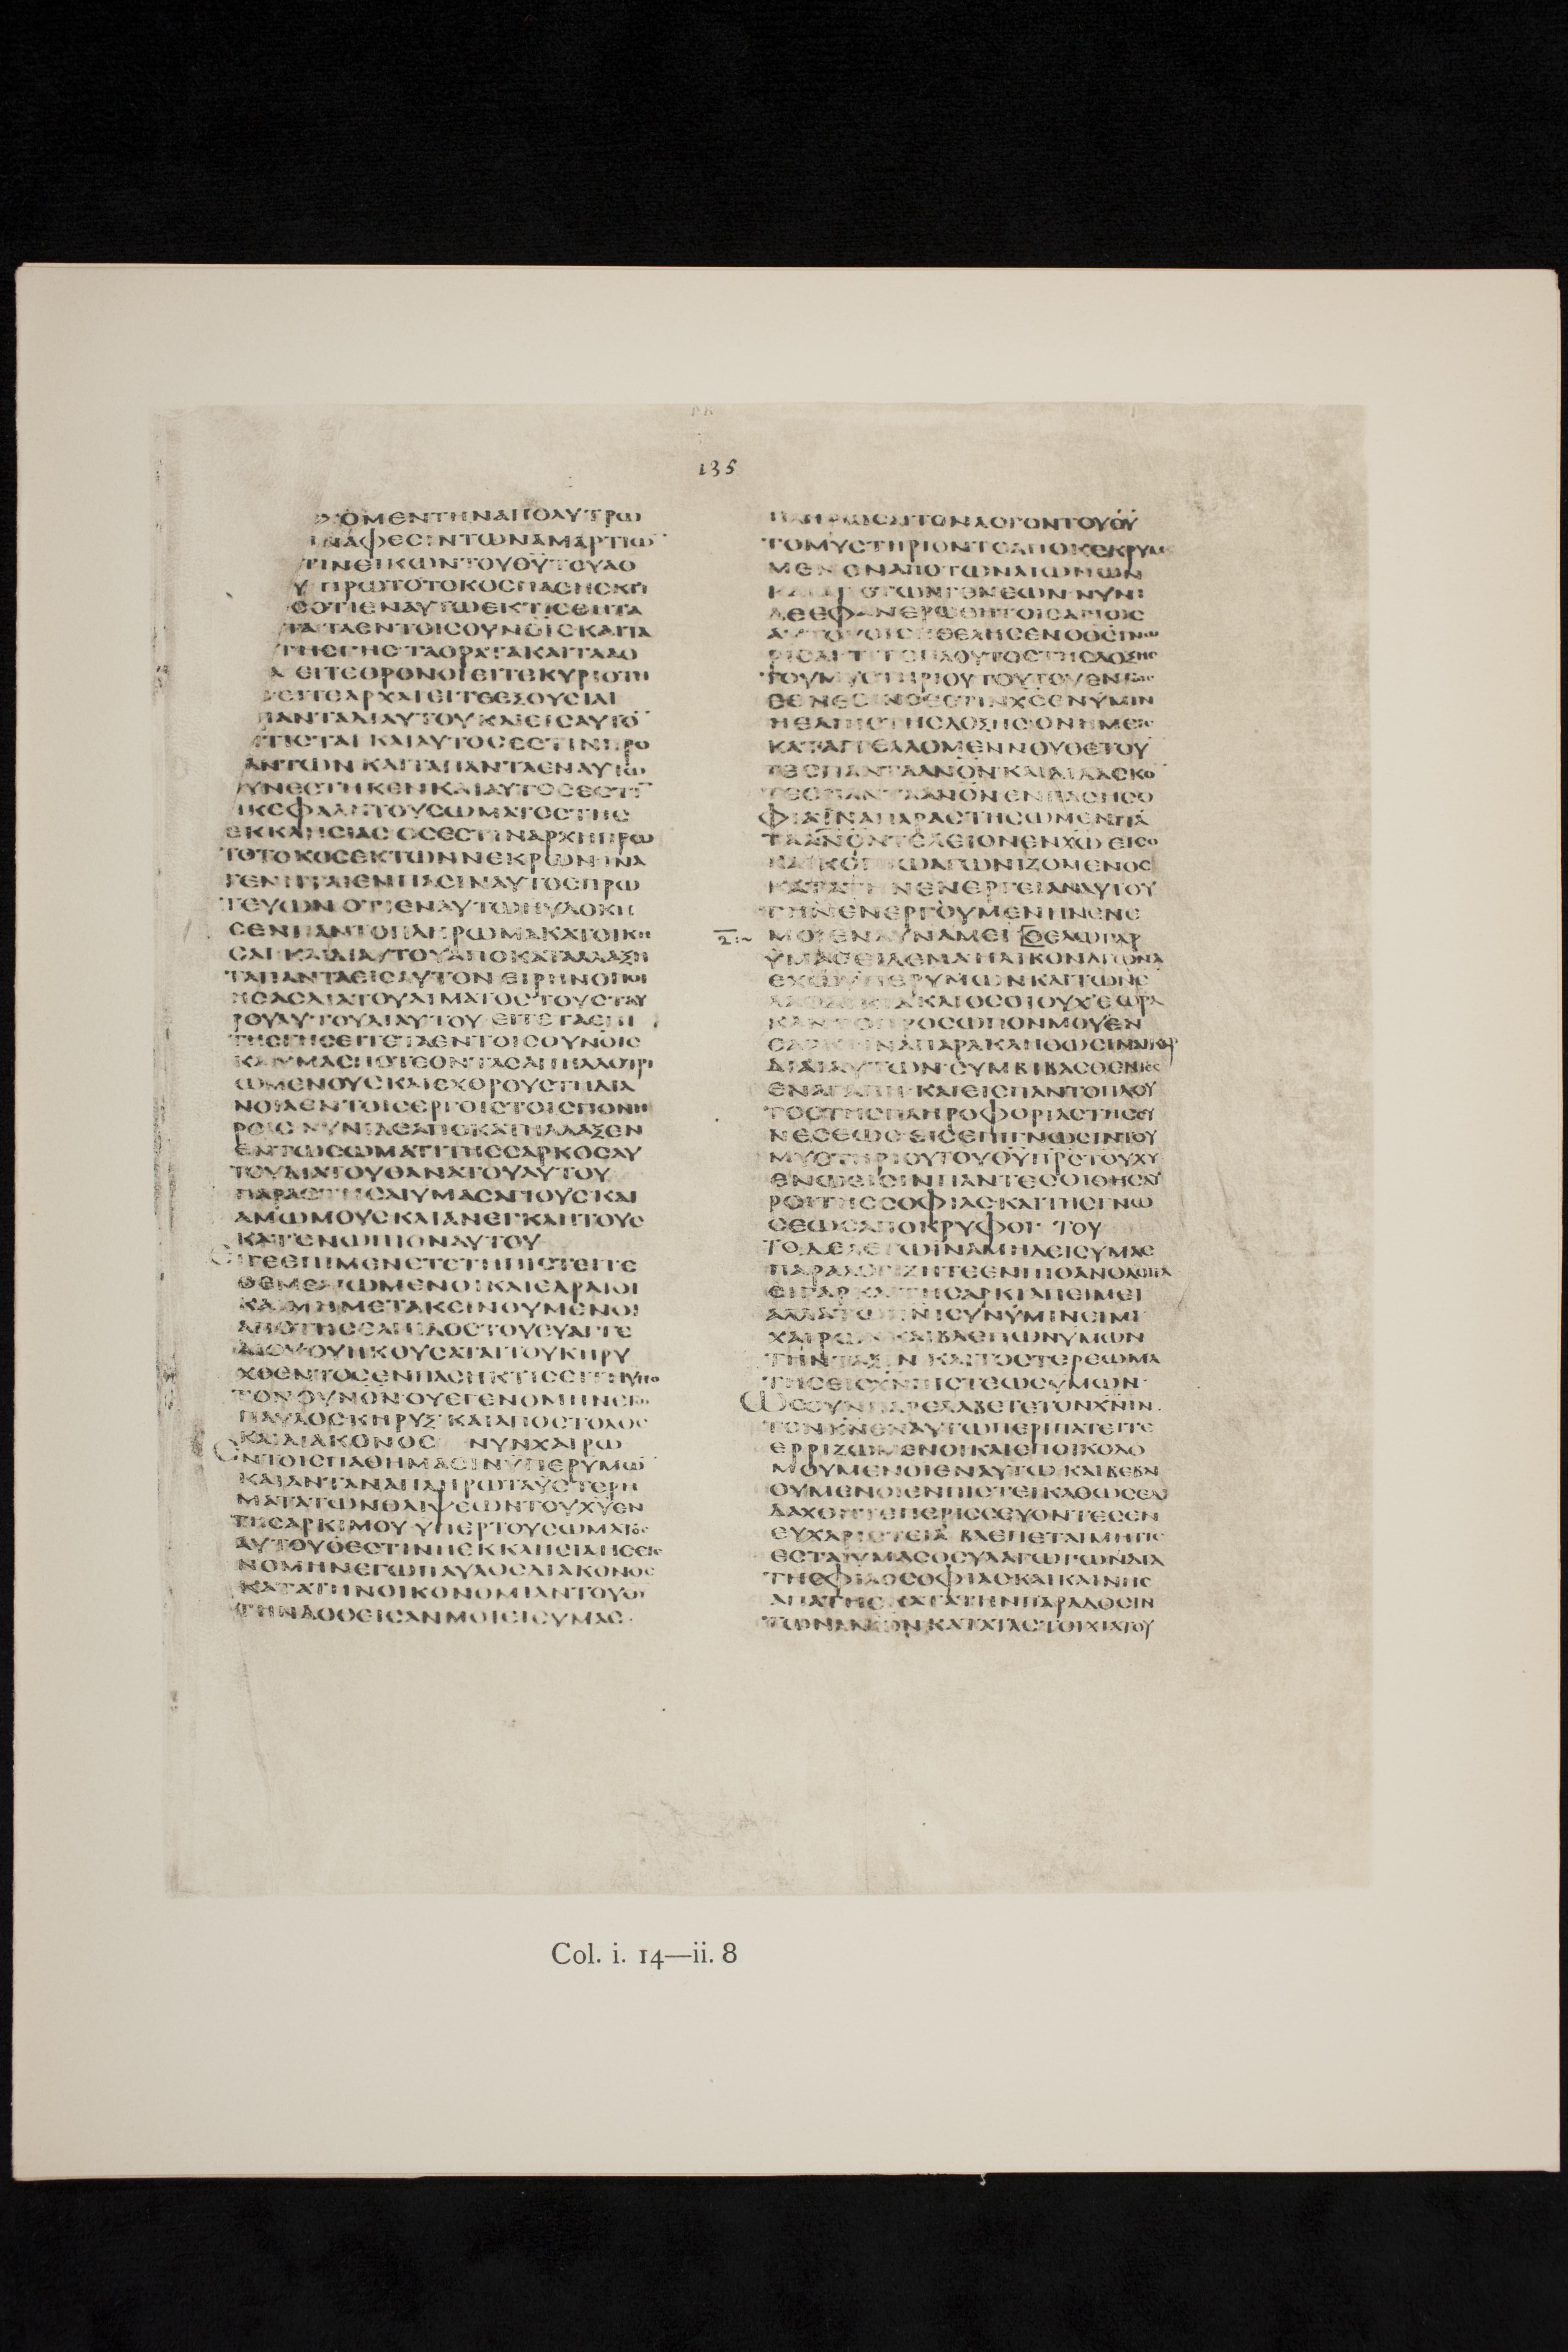 135
ΧΟΜΕΝΤΗΝΑΠΟΛΥΤΡΩ
ΙΝΑΦΕCΙΝΤΩΝΑΜΑΡΤΙΩ
ΤΙΝΕΙΚΩΝΤΟΥΘΥΤΟΥΑΟ
Υ ΠΡΩΤΟΤΟΚΟCΠΑCΗCΚΤΙ
CΟΤΙΕΝΑΥΤΩΕΚΤΙCΘΗΤΑ
ΤΑΤΑΕΝΤΟΙCΟΥΝΟΙCΚΑΙΤΑ
ΤΗCΓΗC ΤΑΟΡΑΤΑΚΑΙΤΑΑΟ
Α ΕΙΤΕΘΡΟΝΟΙΕΙΤΕΚΥΡΙΟΤΗ
CΕΙΤΕΑΡΧΑΙΕΙΤΕΕΞΟΥCΙΑΙ
ΠΑΝΤΑΔΙΑΥΤΟΥΚΑΙΕΙCΑΥΤΟ
ΤΙCΤΑΙ ΚΑΙΑΥΤΟCΕCΤΙΝΠΡΟ
ΑΝΤΩΝ ΚΑΙΤΑΠΑΝΤΑΕΝΑΥΤΩ
ΥΝΕCΤΗΚΕΝΚΑΙΑΥΤΟCΕCΤΙ
ΗΚΕΦΑΛΗΤΟΥCΩΜΑΤΟCΤΗC
ΕΚΚΛΗCΙΑC ΟCΕCΤΙΝΑΡΧΗΠΡΩ
ΤΟΤΟΚΟCΕΚΤΩΝΝΕΚΡΩΝΙΝΑ
ΓΕΝΗΤΑΙΕΝΠΑCΙΝΑΥΤΟCΠΡΩ
ΤΕΥΩΝ ΟΤΙΕΝΑΥΤΩΗΥΔΟΚΗ
CΕΝΠΑΝΤΟΠΛΗΡΩΜΑΚΑΤΟΙΚΗ
CΑΙ ΚΑΙΔΙΑΥΤΟΥΑΠΟΚΑΤΑΛΛΑΞΗ
ΤΑΠΑΝΤΑΕΙCΑΥΤΟΝ ΕΙΡΗΝΟΠΟΙ
ΗCΑCΔΙΑΤΟΥΑΙΜΑΤΟC ΤΟΥCΤΑΥ
ΡΟΥΑΥΤΟΥΔΙΑΥΤΟΥ ΕΙΤΕΤΑΕΠΙ
ΤΗCΓΗCΕΙΤΕΤΑΕΝΤΟΙCΟΥΝΟΙC
ΚΑΙΥΜΑCΠΟΤΕΟΝΤΑCΑΠΗΛΛΟΤΡΙ
ΩΜΕΝΟΥCΚΑΙΕΧΘΡΟΥCΤΗΔΙΑ
ΝΟΙΑΕΝΤΟΙCΕΡΓΟΙCΤΟΙCΠΟΝΗ
ΡΟΙC ΝΥΝΙΔΕΑΠΟΚΑΤΗΛΛΑΞΕΝ
ΕΝΤΩCΩΜΑΤΙΤΗCCΑΡΚΟCΑΥ
ΤΟΥΔΙΑΤΟΥΘΑΝΑΤΟΥΑΥΤΟΥ
ΠΑΡΑCΤΗCΑΙΥΜΑCΑΓΙΟΥCΚΑΙ
ΑΜΩΜΟΥCΚΑΙΑΝΕΓΚΛΗΤΟΥC
ΚΑΤΕΝΩΠΙΟΝΑΥΤΟΥ
ΕΙΓΕΕΠΙΜΕΝΕΤΕΤΗΠΙCΤΕΙΤΕ
ΘΕΜΕΛΙΩΜΕΝΟΙΚΑΙΕΔΡΑΙΟΙ
ΚΑΙΜΗΜΕΤΑΚΕΙΝΟΥΜΕΝΟΙ
ΑΠΟΤΗCΕΛΠΙΔΟCΤΟΥΕΥΑΓΓΕ
ΛΙΟΥΟΥΗΚΟΥCΑΤΑΙΤΟΥΚΗΡΥ
ΧΘΕΝΤΟCΕΝΠΑCΗΚΤΙCΕΙΤΗΥΠΟ
ΤΟΝΟΥΝΟΝΟΥΕΓΕΝΟΜΗΝΕΓΩ
ΠΑΥΛΟCΚΗΡΥΞΚΑΙΑΠΟCΤΟΛΟC
ΚΑΙΔΙΑΚΟΝΟC ΝΥΝΧΑΙΡΩ
ΕΝΤΟΙCΠΑΘΗΜΑCΙΝΥΠΕΡΥΜΩ
ΚΑΙΑΝΤΑΝΑΠΛΗΡΩΤΑΥCΤΕΡΗ
ΜΑΤΑΤΩΝΘΛΙΨΕΩΝΤΟΥΧΥΕΝ
ΤΗCΑΡΚΙΜΟΥ ΥΠΕΡΤΟΥCΩΜΑΤΟC
ΑΥΤΟΥΟΕCΤΙΝΗΕΚΚΛΗCΙΑΗCΕΓΕ
ΝΟΜΗΝΕΓΩΠΑΥΛΟCΔΙΑΚΟΝΟC
ΚΑΤΑΤΗΝΟΙΚΟΝΟΜΙΑΝΤΟΥΘΥ
ΤΗΝΔΟΘΕΙCΑΝΜΟΙΕΙCΥΜΑC
ΠΛΗΡΩCΑΙΤΟΝΛΟΓΟΝΤΟΥΘΥ
ΤΟΜΥCΤΗΡΙΟΝΤΟΑΠΟΚΕΚΡΥΜ
ΜΕΝΟΝΑΠΟΤΩΝΑΙΩΝΩΝ
ΚΑΙΑΠΟΤΩΝΓΕΝΕΩΝ ΝΥΝΙ
ΔΕΕΦΑΝΕΡΩΘΗΤΟΙCΑΓΙΟΙC
ΑΥΤΟΥΟΙCΗΘΕΛΗCΕΝΟΘCΓΝΩ
ΡΙCΑΙ ΤΙΤΟΠΛΟΥΤΟCΤΗCΔΟΞΗC
ΤΟΥΜΥCΤΗΡΙΟΥΤΟΥΤΟΥΕΝΤΟΙC
ΕΘΝΕCΙΝΟΕCΤΙΝΧCΕΝΥΜΙΝ
ΗΕΛΠΙCΤΗCΔΟΞΗCΟΝΗΜΕΙC
ΚΑΤΑΓΓΕΛΛΟΜΕΝΝΟΥΘΕΤΟΥ
ΤΕCΠΑΝΤΑΑΝΟΝΚΑΙΔΙΔΑCΚΟ
ΤΕCΠΑΝΤΑΑΝΟΝΕΝΠΑCΗCΟ
ΦΙΑΙΝΑΠΑΡΑCΤΗCΩΜΕΝΠΑ
ΤΑΑΝΟΝΤΕΛΕΙΟΝΕΝΧΩ ΕΙCΟ
ΚΑΙΚΟΠΙΩΑΓΩΝΙΖΟΜΕΝΟC
ΚΑΤΑΤΗΝΕΝΕΡΓΕΙΑΝΑΥΤΟΥ
ΤΗΝΕΝΕΡΓΟΥΜΕΝΗΝΕΝΕ
ΜΟΙΕΝΔΥΝΑΜΕΙ ΘΕΛΩΓΑΡ
ΥΜΑCΕΙΔΕΝΑΙΗΛΙΚΟΝΑΓΩΝΑ
ΕΧΩΥΠΕΡΥΜΩΝΚΑΙΤΩΝΕ
ΛΑΟΔΙΚΙΑΚΑΙΟCΟΙΟΥΧΕΩΡΑ
ΚΑΝΤΟΠΡΟCΩΠΟΝΜΟΥΕΝ
CΑΡΚΙΙΝΑΠΑΡΑΚΛΗΘΩCΙΝΑΙΚΑΡ
ΔΙΑΙΑΥΤΩΝCΥΜΒΙΒΑCΘΕΝΤΕC
ΕΝΑΓΑΠΗ ΚΑΙΕΙCΠΑΝΤΟΠΛΟΥ
ΤΟCΤΗCΠΛΗΡΟΦΟΡΙΑCΤΗCCΥ
ΝΕCΕΩC ΕΙCΕΠΙΓΝΩCΙΝΤΟΥ
ΜΥCΤΗΡΙΟΥΤΟΥΘΥΠΡCΤΟΥΧΥ
ΕΝΩΕΙCΙΝΠΑΝΤΕCΟΙΘΗCΑΥ
ΡΟΙΤΗCCΟΦΙΑCΚΑΙΤΗCΓΝΩ
CΕΩCΑΠΟΚΡΥΦΟΙ ΤΟΥ
ΤΟΔΕΛΕΓΩΙΝΑΜΗΔΕΙCΥΜΑC
ΠΑΡΑΛΟΓΙΖΗΤΕΕΝΠΙΘΑΝΟΛΟΓΙΑ
ΕΙΓΑΡΚΑΙΤΗCΑΡΚΙΑΠΕΙΜΕΙ
ΑΛΛΑΤΩΠΝΙCΥΝΥΜΙΝΕΙΜΙ
ΧΑΙΡΩΝΚΑΙΒΛΕΠΩΝΥΜΩΝ
ΤΗΝΤΑΞΙΝ ΚΑΙΤΟCΤΕΡΕΩΜΑ
ΤΗCΕΙCΧΝΠΙCΤΕΩCΥΜΩΝ
ΩCΟΥΝΠΑΡΕΛΑΒΕΤΕΤΟΝΧΝΙΝ
ΤΟΝΚΝΕΝΑΥΤΩΠΕΡΙΠΑΤΕΙΤΕ
ΕΡΡΙΖΩΜΕΝΟΙΚΑΙΕΠΟΙΚΟΔΟ
ΜΟΥΜΕΝΟΙΕΝΑΥΤΩ ΚΑΙΒΕΒΑΙ
ΟΥΜΕΝΟΙΕΝΠΙCΤΕΙΚΑΘΩCΕΔΙ
ΔΑΧΘΗΤΕΠΕΡΙCCΕΥΟΝΤΕCΕΝ
ΕΥΧΑΡΙCΤΕΙΑ ΒΛΕΠΕΤΑΙΜΗΤΙC
ΕCΤΑΙΥΜΑCΟCΥΛΑΓΩΓΩΝΔΙΑ
ΤΗCΦΙΛΟCΟΦΙΑCΚΑΙΚΑΙΝΗC
ΑΠΑΤΗC ΚΑΤΑΤΗΝΠΑΡΑΔΟCΙΝ
ΤΩΝΑΝΩΝ ΚΑΤΑΤΑCΤΟΙΧΙΑΤΟΥ
Col. i. 14—ii. 8